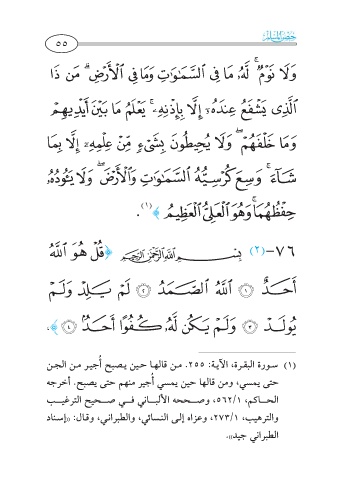 حصن المسلم
٥٥
وَلَا نَوْمٌ ۚ لَّهُ مَا فِي السَّمَاوَاتِ وَمَا فِي الْأَرْضِ ۗ مَن ذَا
الَّذِي يَشْفَعُ عِندَهُ إِلَّا بِإِذْنِهِ ۚ يَعْلَمُ مَا بَيْنَ أَيْدِيهِمْ
وَمَا خَلْفَهُمْ ۖ وَلَا يُحِيطُونَ بِشَيْءٍ مِّنْ عِلْمِهِ إِلَّا بِمَا
شَاءَ ۚ وَسِعَ كُرْسِيُّهُ السَّمَاوَاتِ وَالْأَرْضَ ۖ وَلَا يَئُودُهُ
حِفْظُهُمَا ۚ وَهُوَ الْعَلِيُّ الْعَظِيمُ ﴾ (١).
٧٦- (٢) بِسْمِ اللَّهِ الرَّحْمَٰنِ الرَّحِيمِ ﴿ قُلْ هُوَ اللَّهُ
أَحَدٌ ۝١ اللَّهُ الصَّمَدُ ۝٢ لَمْ يَلِدْ وَلَمْ
يُولَدْ ۝٣ وَلَمْ يَكُن لَّهُ كُفُوًا أَحَدٌ ۝٤ ﴾.
(١) سورة البقرة، الآية: ٢٥٥. من قالها حين يصبح أُجير من الجن
حتى يمسي، ومن قالها حين يمسي أُجير منهم حتى يصبح. أخرجه
الحاكم، ٥٦٢/١، وصححه الألباني في صحيح الترغيب
والترهيب، ٢٧٣/١، وعزاه إلى النسائي، والطبراني، وقال: «إسناد
الطبراني جيد».